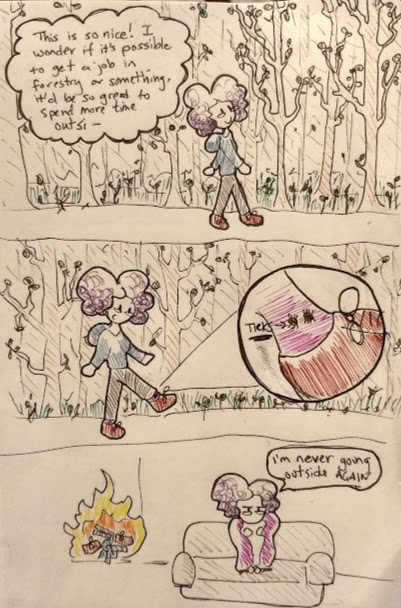 This is so nice! I
wonder if it's possible
to get a job in
forestry or something.
it'd be so great to
spend more time
outsi –
TICKS →
i'm never going
outside AGAIN